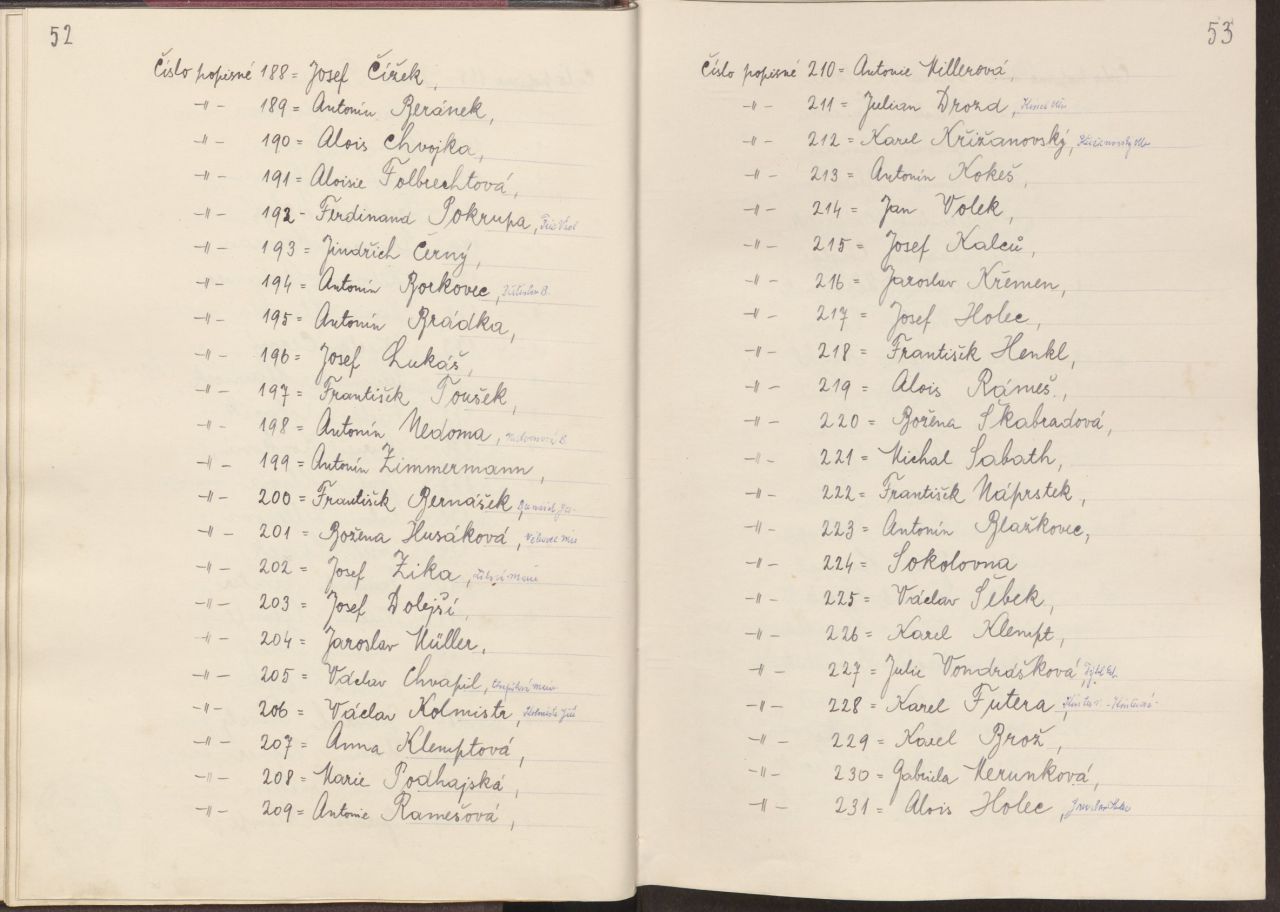 52
Číslo popisné 188 = Josef Čížek,
-"- 189 = Antonín Beránek,
-"- 190 = Alois Chvojka,
-"- 191 = Aloisie Folbrechtová,
-"- 192 - Ferdinand Pokrupa,
-"- 193 = Jindřich Černý,
-"- 194 = Antonín Borkovec,
-"- 195 = Antonín Brádka,
-"- 196 = Josef Lukáš,
-"- 197 = František Toušek,
-"- 198 = Antonín Nedoma,
-"- 199 = Antonín Zimmermann,
-"- 200 = František Bernášek,
-"- 201 = Božena Husáková,
-"- 202 = Josef Zika,
-"- 203 = Josef Dolejší,
-"- 204 = Jaroslav Müller,
-"- 205 = Václav Chvapil,
-"- 206 = Václav Kolmistr,
-"- 207 = Anna Klemptová,
-"- 208 = Marie Podhajská,
-"- 209 = Antonie Ramešová,
53
Číslo popisné 210 = Antonie Millerová,
-"- 211 = Julian Drozd,
-"- 212 = Karel Křižanovský,
-"- 213 = Antonín Kokeš,
-"- 214 = Jan Volek,
-"- 215 = Josef Kalců,
-"- 216 = Jaroslav Křemen,
-"- 217 = Josef Holec,
-"- 218 = František Henkl,
-"- 219 = Alois Rámeš,
-"- 220 = Božena Škabradová,
-"- 221 = Michal Sabath,
-"- 222 = František Náprstek,
-"- 223 = Antonín Blažkovec,
-"- 224 = Sokolovna
-"- 225 = Václav Šebek,
-"- 226 = Karel Klempt,
-"- 227 = Julie Vondrášková,
-"- 228 = Karel Futera,
-"- 229 = Karel Brož,
-"- 230 = Gabriela Merunková,
-"- 231 = Alois Holec,